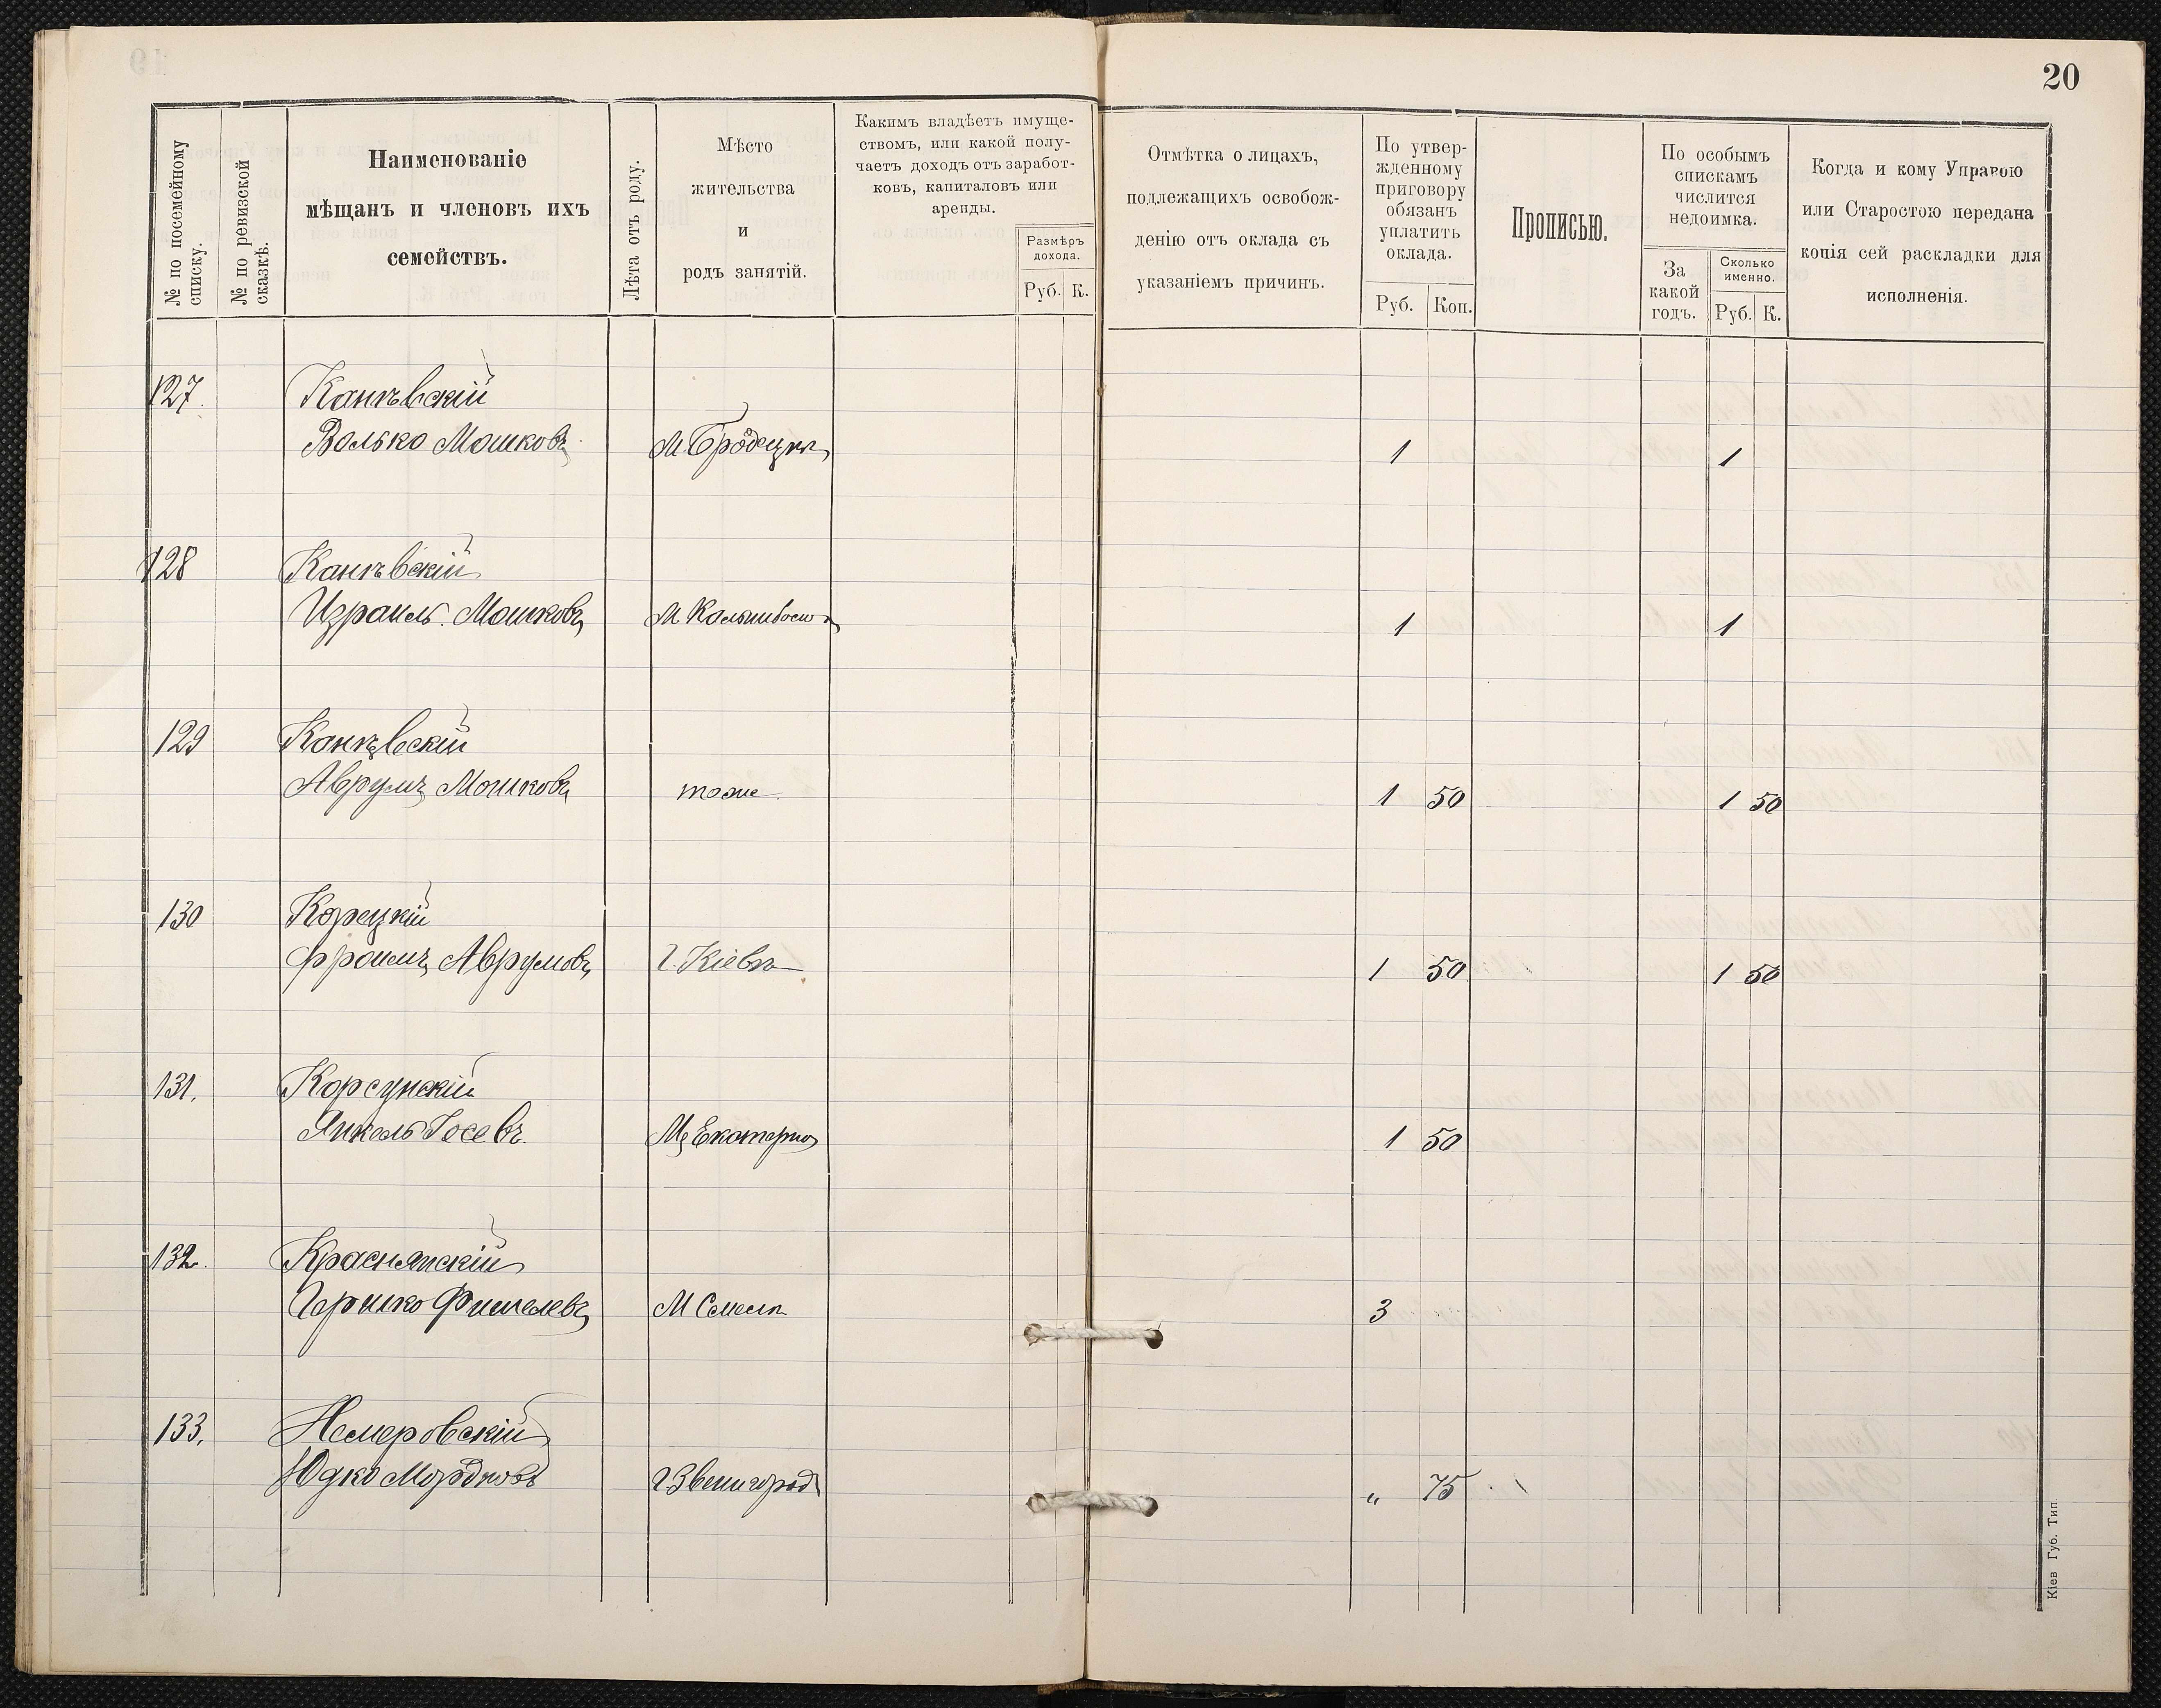 20
№ по посемейному списку.
№ по ревизской сказкѣ.
Наименованіе
мѣщанъ и членовъ ихъ
семействъ.
Лѣта отъ роду.
Мѣсто
жительства
и
родъ занятій.
Какимъ владѣетъ имуще-
ствомъ, или какой полу-
чаетъ доходъ отъ заработ-
ковъ, капиталовъ или
аренды.
Размѣръ
дохода.
Руб. К.
Отмѣтка о лицахъ,
подлежащихъ освобож-
денію отъ оклада съ
указаніемъ причинъ.
По утвер-
жденному
приговору
обязанъ
уплатить
оклада.
Руб. Коп.
Прописью.
По особымъ
спискамъ
числится
недоимка.
За
какой
годъ.
Сколько
именно.
Руб. К.
Когда и кому Управою
или Старостою передана
копія сей раскладки для
исполненія.
127. Каневскій
Волько Мошковъ М. Бродецкъ 1 1
128 Каневскій
Израиль Мошковъ М 1 1
129 Каневскій
Аврумъ Мошковъ тоже 1 50 1 50
130 Корецкій
Фроимъ Аврумовъ Г. Кіевъ 1 50 1 50
131. Корсунскій
Янкель Іосевъ М. Екатериноп 1 50
132. Краснянскій
Гершко Фишелевъ М Смела 3
133. Немеровскій
Юдко Мордковъ Г Звенигород " 75
Кіев Губ. Тип.